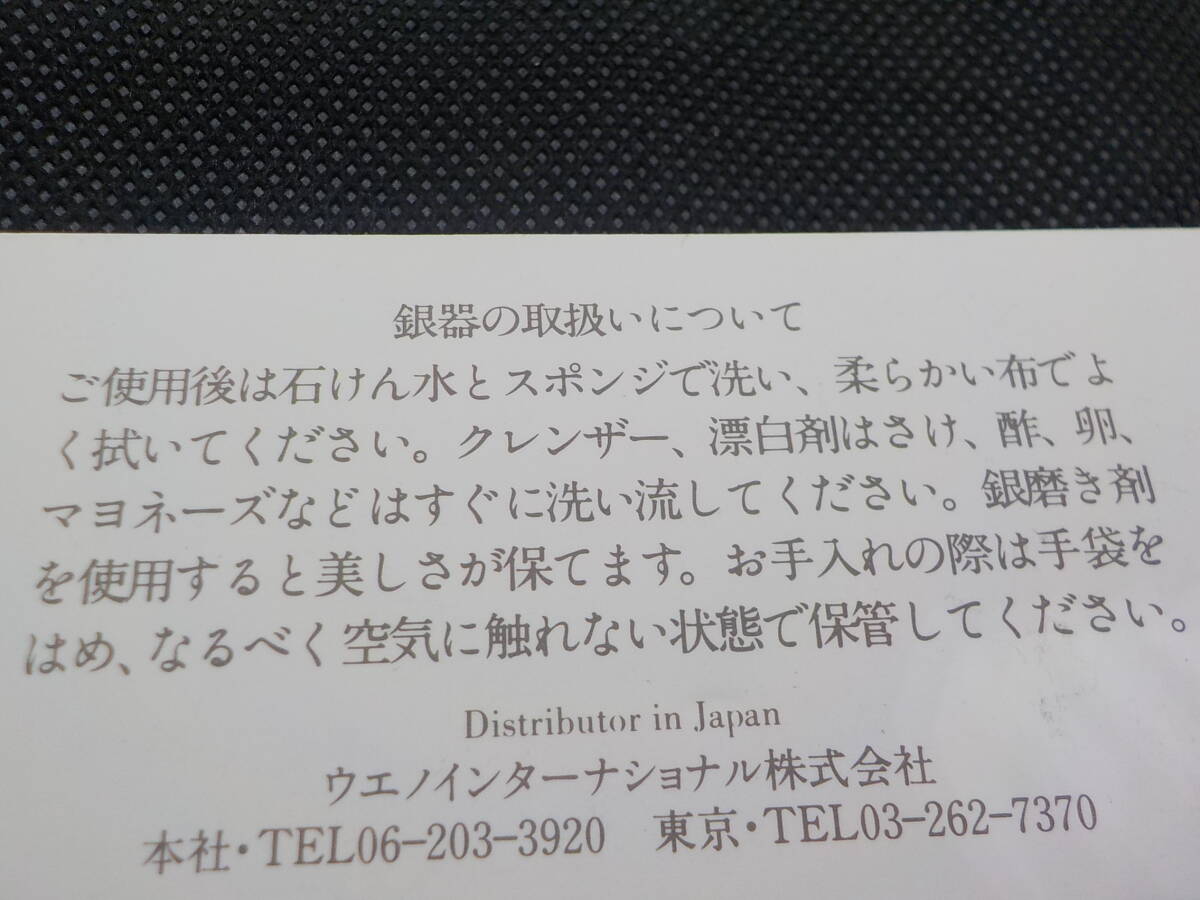 銀器の取扱いについて
ご使用後は石けん水とスポンジで洗い、柔らかい布でよ
く拭いてください。クレンザー、漂白剤はさけ、酢、卵、
マヨネーズなどはすぐに洗い流してください。銀磨き剤
を使用すると美しさが保てます。お手入れの際は手袋を
はめ、なるべく空気に触れない状態で保管してください。
Distributor in Japan
ウエノインターナショナル株式会社
本社・TEL06-203-3920　東京・TEL03-262-7370